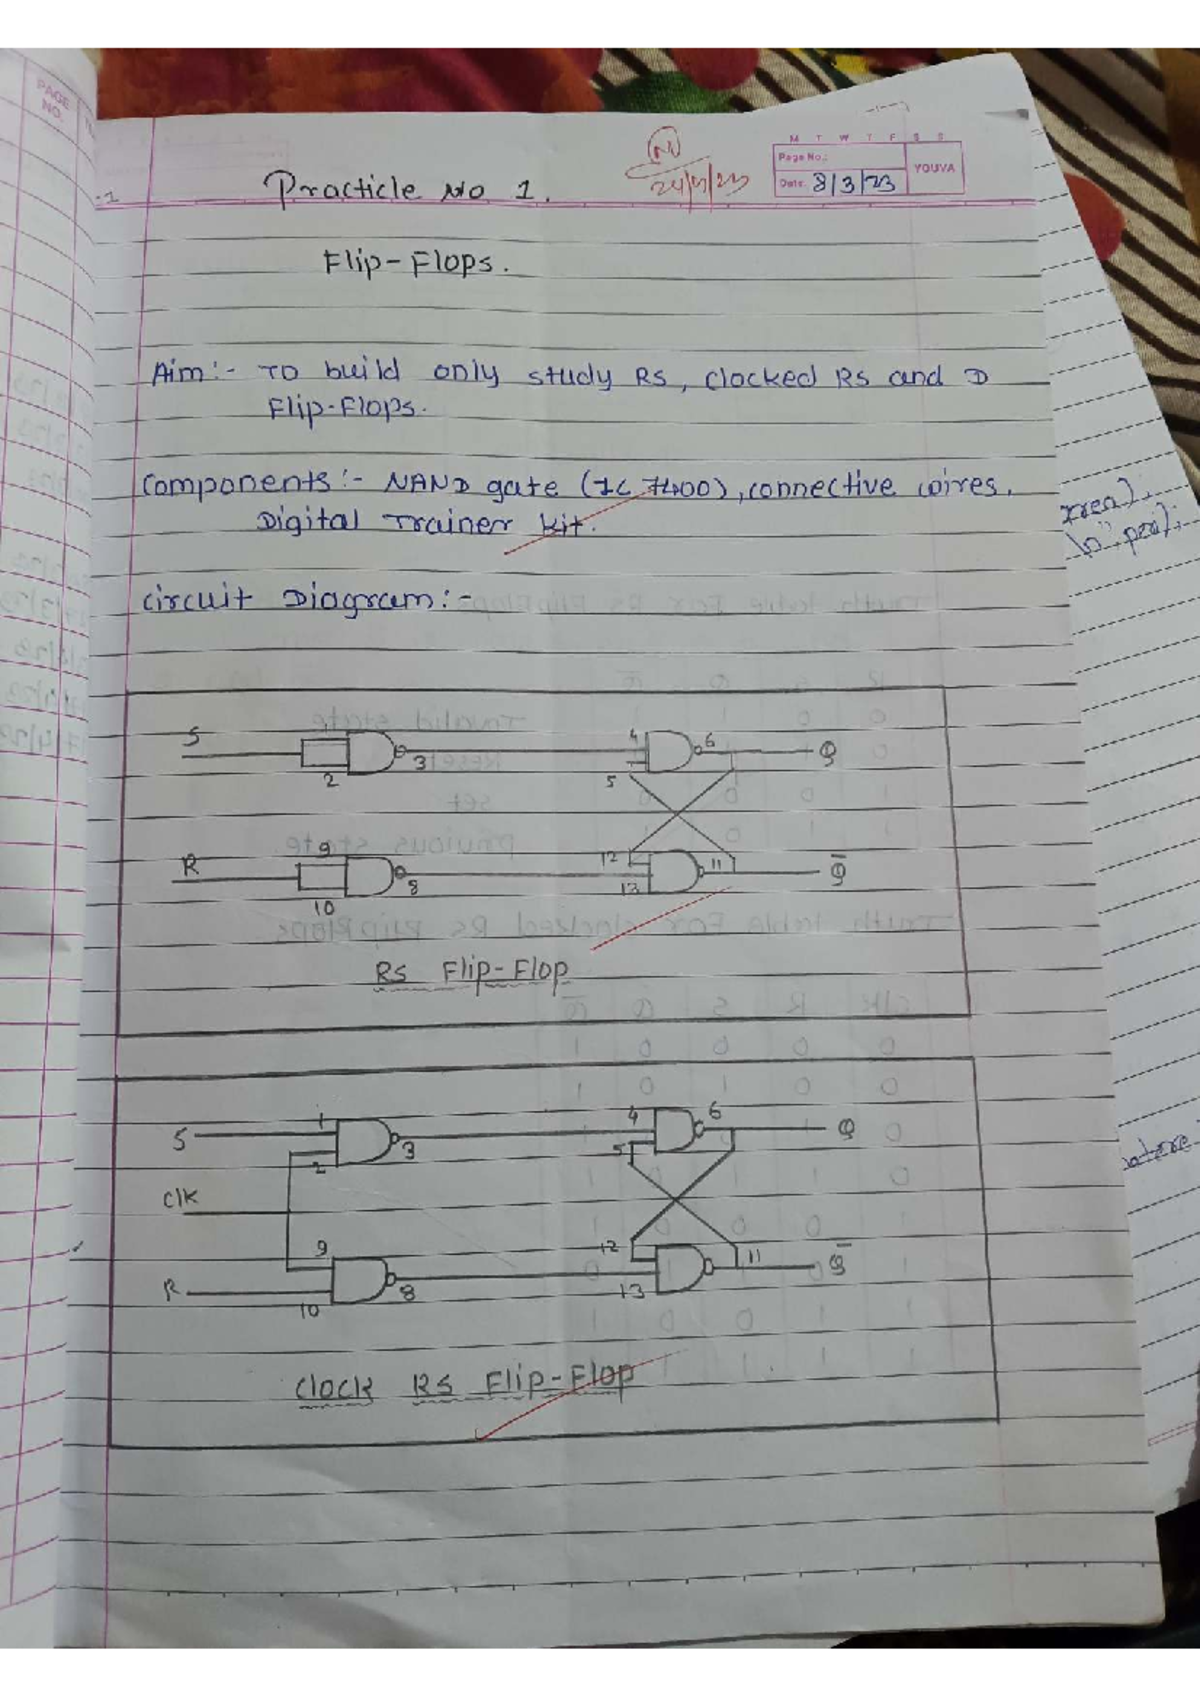 PAGE NO.
M T W T F S S
Page No.:
YOUVA
Date: 8/3/23
Practicle No 1.
Flip-Flops.
Aim:- To build only study RS, clocked RS and D
Flip-Flops.
Components:- NAND gate (IC 7400), connective wires,
Digital Trainer kit.
Circuit Diagram:-
S
2
3
4
5
6
Q
R
9
10
8
12
13
11
Q̅
Rs Flip-Flop
S
1
2
3
4
5
6
Q
Clk
R
9
10
8
12
13
11
Q̅
Clock Rs Flip-Flop